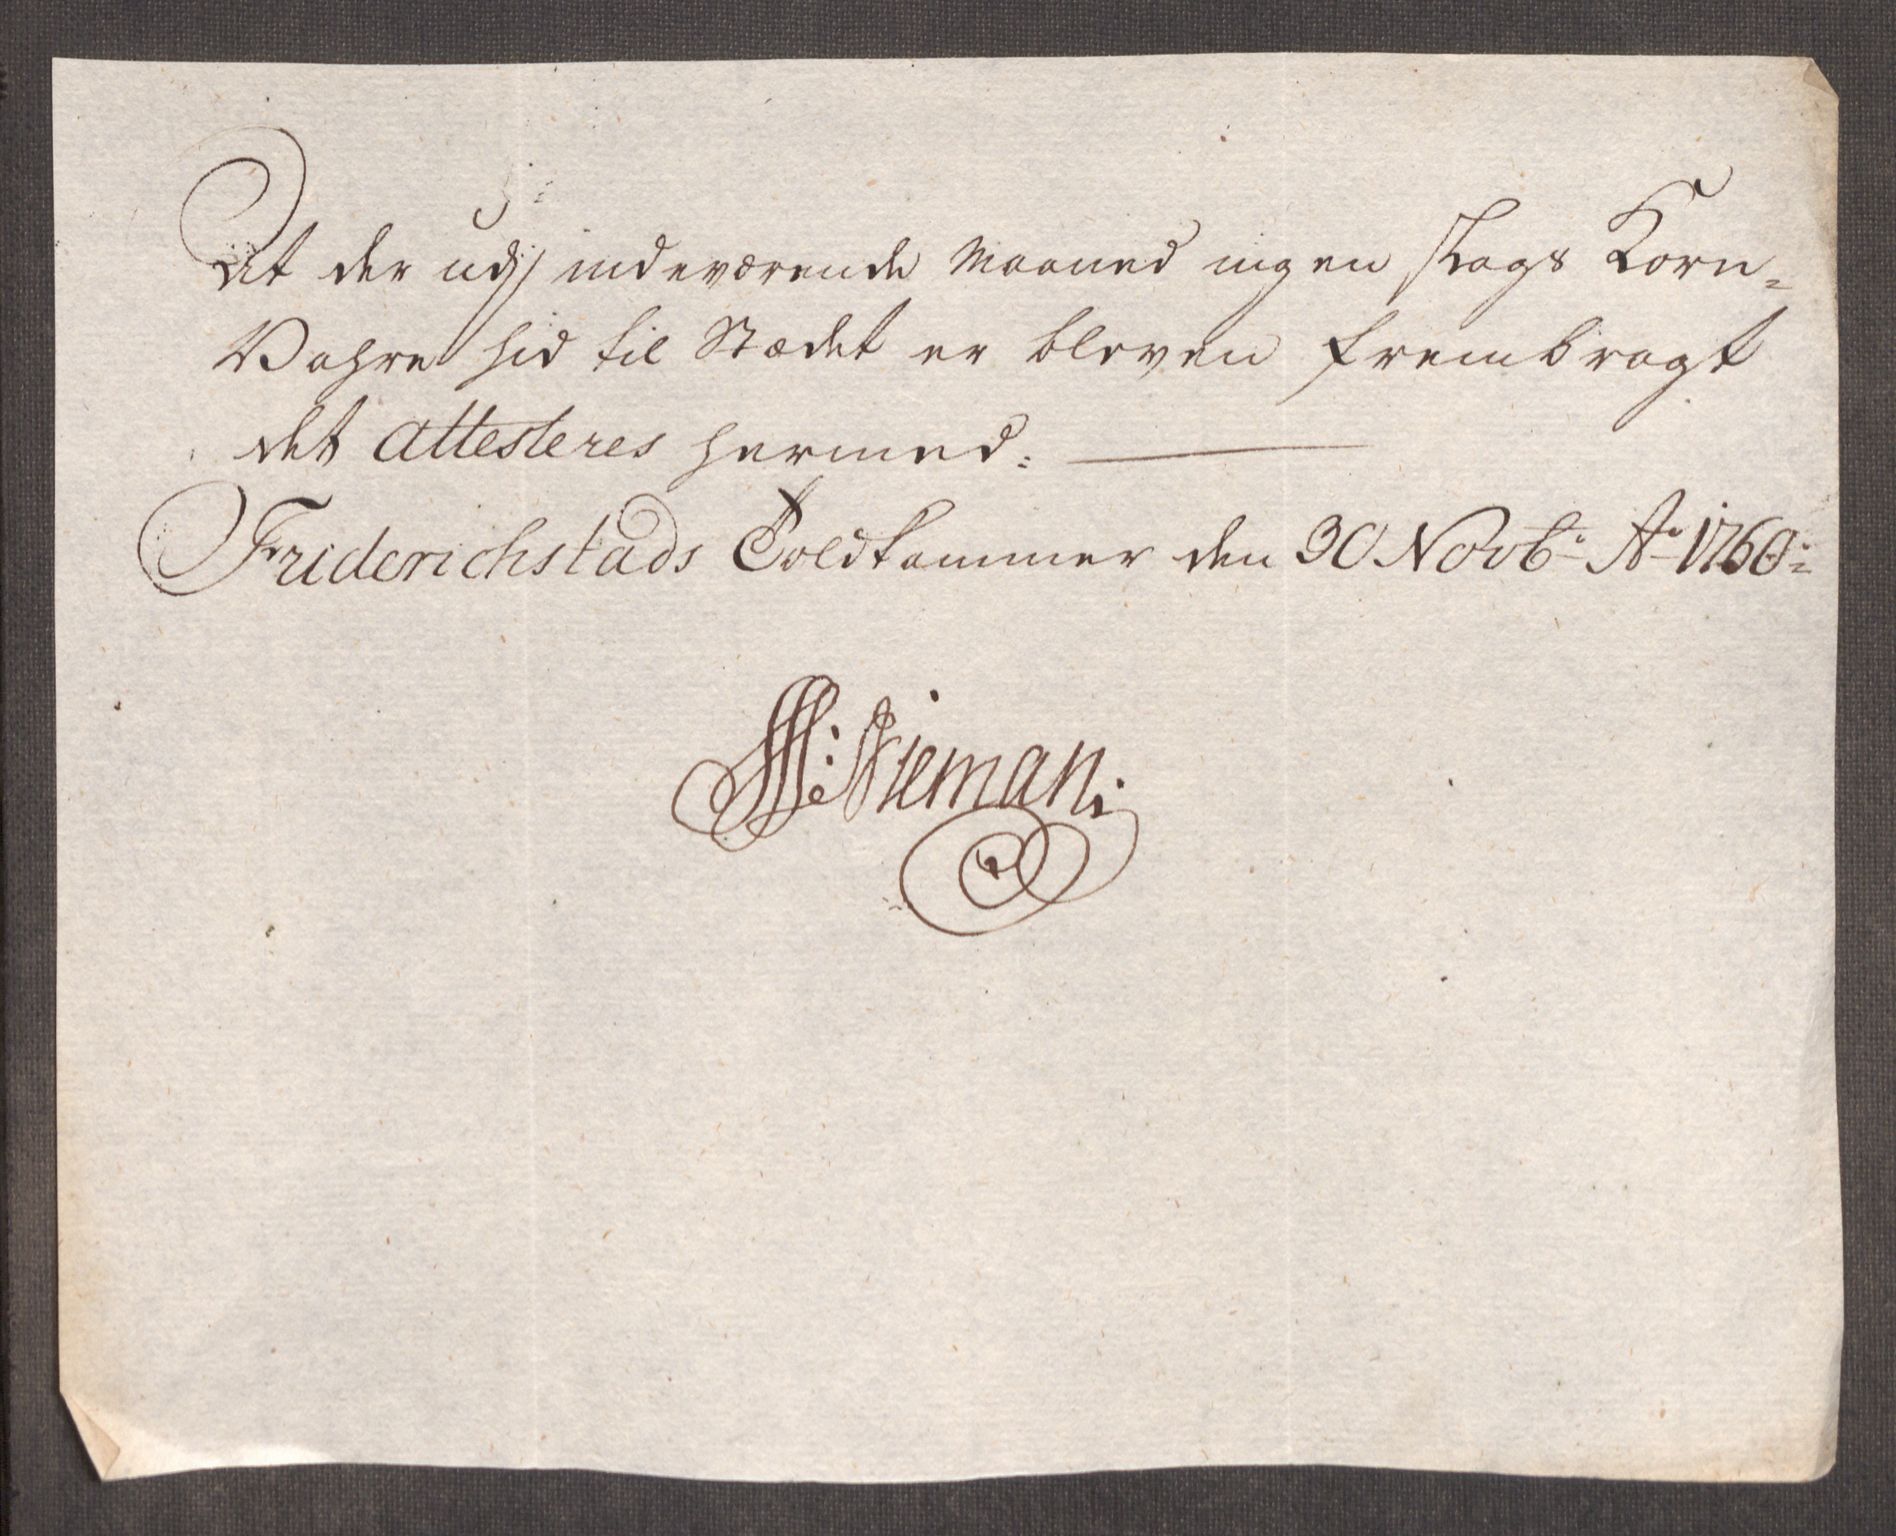 At der udj indeværende Maaned ingen slags Korn-
Vahre hid til Stædet er bleven frembragt
det attesteres hermed:
Friderichstads Toldkammer den 30 Novb: Ao 1760:
Nieman: